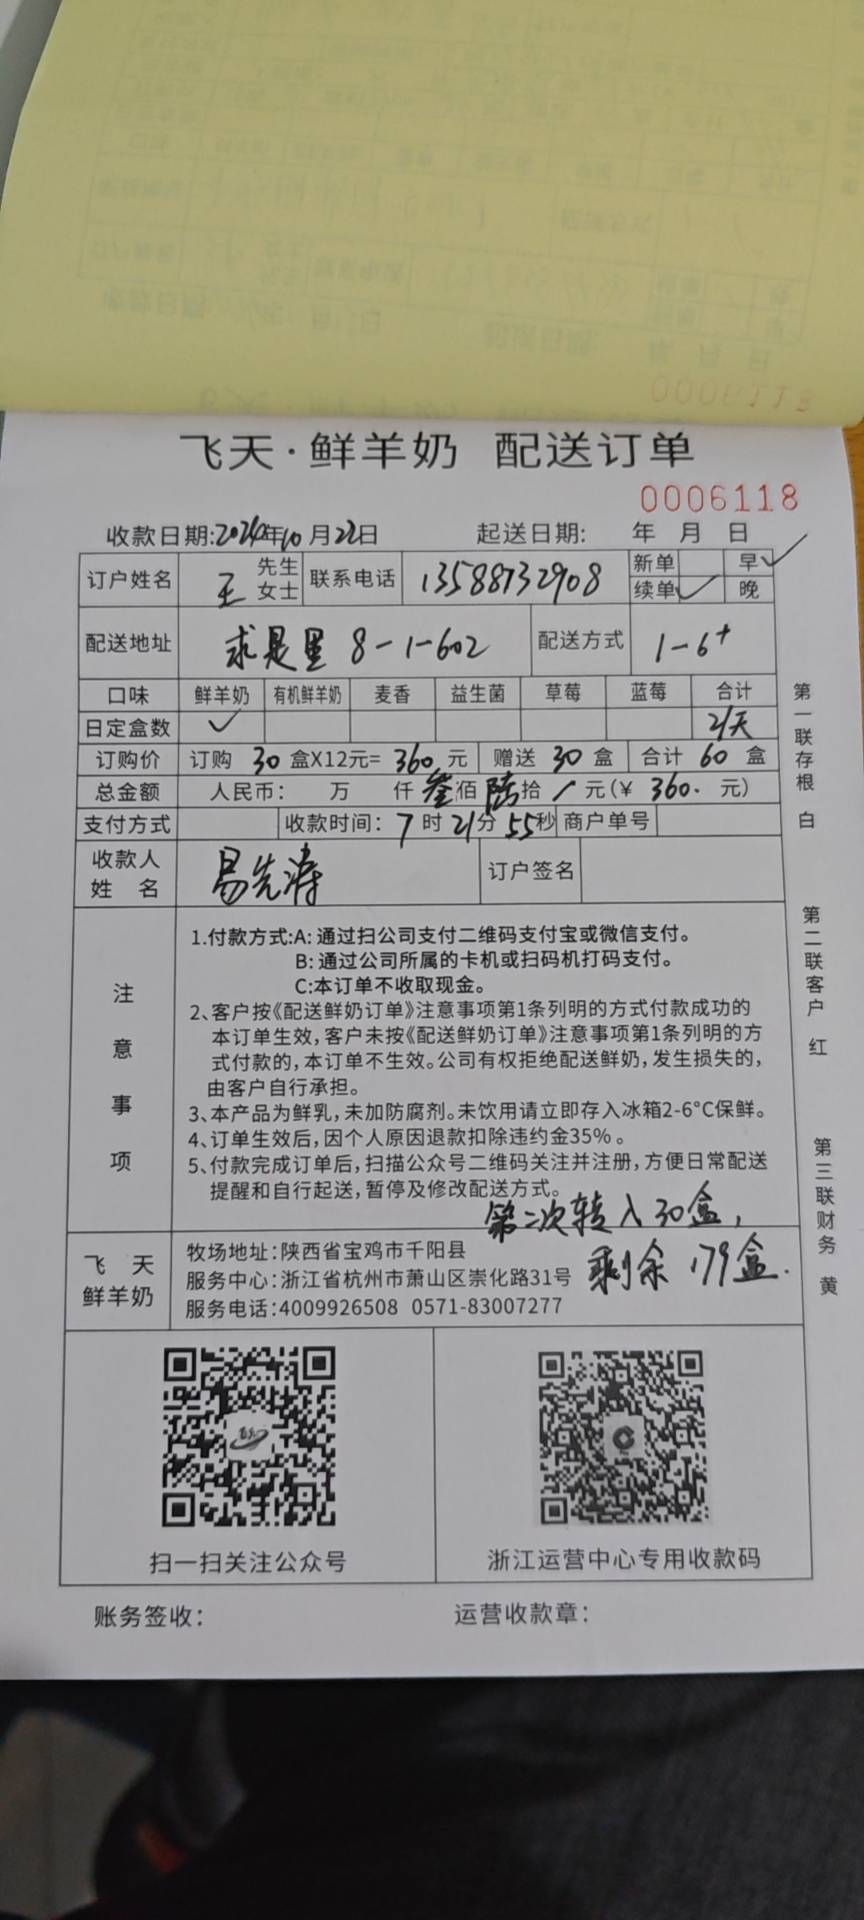 飞天·鲜羊奶 配送订单
0006118
收款日期:2024年10月22日 起送日期: 年 月 日
订户姓名 王 先生 女士 联系电话 13588732908 新单 早✓
续单✓ 晚
配送地址 求是里 8-1-602 配送方式 1-6+
口味 鲜羊奶 有机鲜羊奶 麦香 益生菌 草莓 蓝莓 合计
日定盒数 ✓ 2/天
订购价 订购 30 盒X12元= 360 元 赠送 30 盒 合计 60 盒
总金额 人民币: 万 仟 叁佰 陆拾 / 元(¥ 360. 元)
支付方式 收款时间: 7时21分55秒 商户单号
收款人姓名 易先涛 订户签名
注意事项
1.付款方式:A: 通过扫公司支付二维码支付宝或微信支付。
B: 通过公司所属的卡机或扫码机打码支付。
C:本订单不收取现金。
2、客户按《配送鲜奶订单》注意事项第1条列明的方式付款成功的
本订单生效,客户未按《配送鲜奶订单》注意事项第1条列明的方
式付款的,本订单不生效。公司有权拒绝配送鲜奶,发生损失的,
由客户自行承担。
3、本产品为鲜乳,未加防腐剂。未饮用请立即存入冰箱2-6°C保鲜。
4、订单生效后,因个人原因退款扣除违约金35%。
5、付款完成订单后,扫描公众号二维码关注并注册,方便日常配送
提醒和自行起送,暂停及修改配送方式。
第二次转入30盒,
剩余 179盒.
飞天
鲜羊奶
牧场地址:陕西省宝鸡市千阳县
服务中心:浙江省杭州市萧山区崇化路31号
服务电话:4009926508 0571-83007277
扫一扫关注公众号 浙江运营中心专用收款码
账务签收: 运营收款章:
第一联存根 白
第二联客户 红
第三联财务 黄
0006118